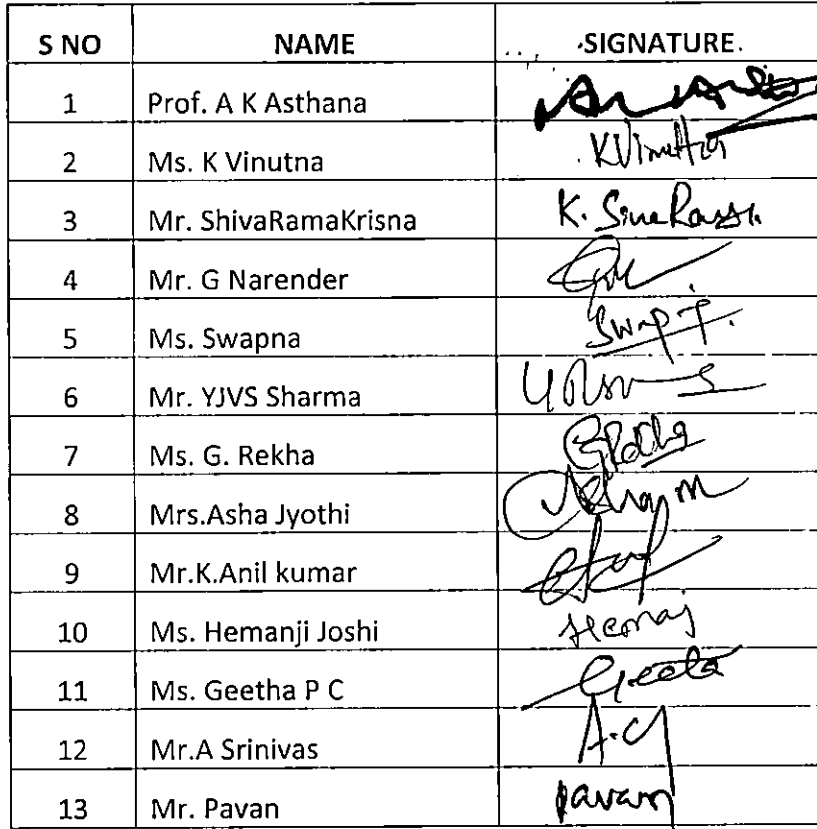 S NO NAME SIGNATURE
1 Prof. A K Asthana
2 Ms. K Vinutna KVinutha
3 Mr. ShivaRamaKrisna K.
4 Mr. G Narender
5 Ms. Swapna
6 Mr. YJVS Sharma
7 Ms. G. Rekha
8 Mrs.Asha Jyothi
9 Mr.K.Anil kumar
10 Ms. Hemanji Joshi Hemaj
11 Ms. Geetha P C Geeta
12 Mr.A Srinivas
13 Mr. Pavan Pavan